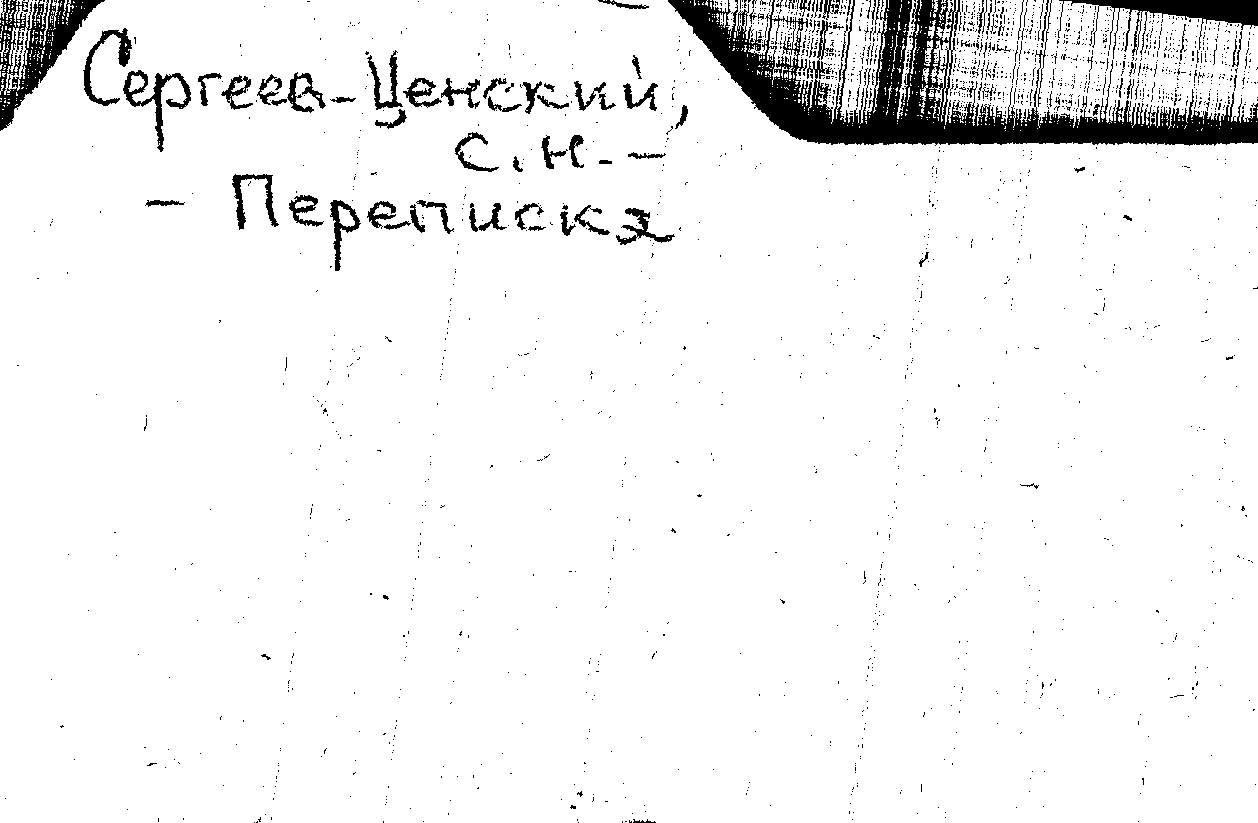 Сергеев-Ценский,
С.Н. -
- Переписка